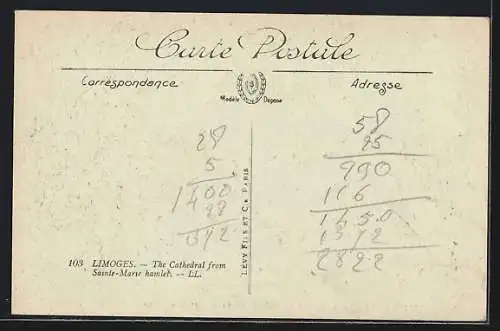 Carte Postale
Correspondance
Adresse
Modèle Déposé
28
5
1400
58
25
990
116
1450
1372
2822
LÉVY FILS ET Cie PARIS
103 LIMOGES. — The Cathedral from
Sainte-Marie hamlet. — LL.